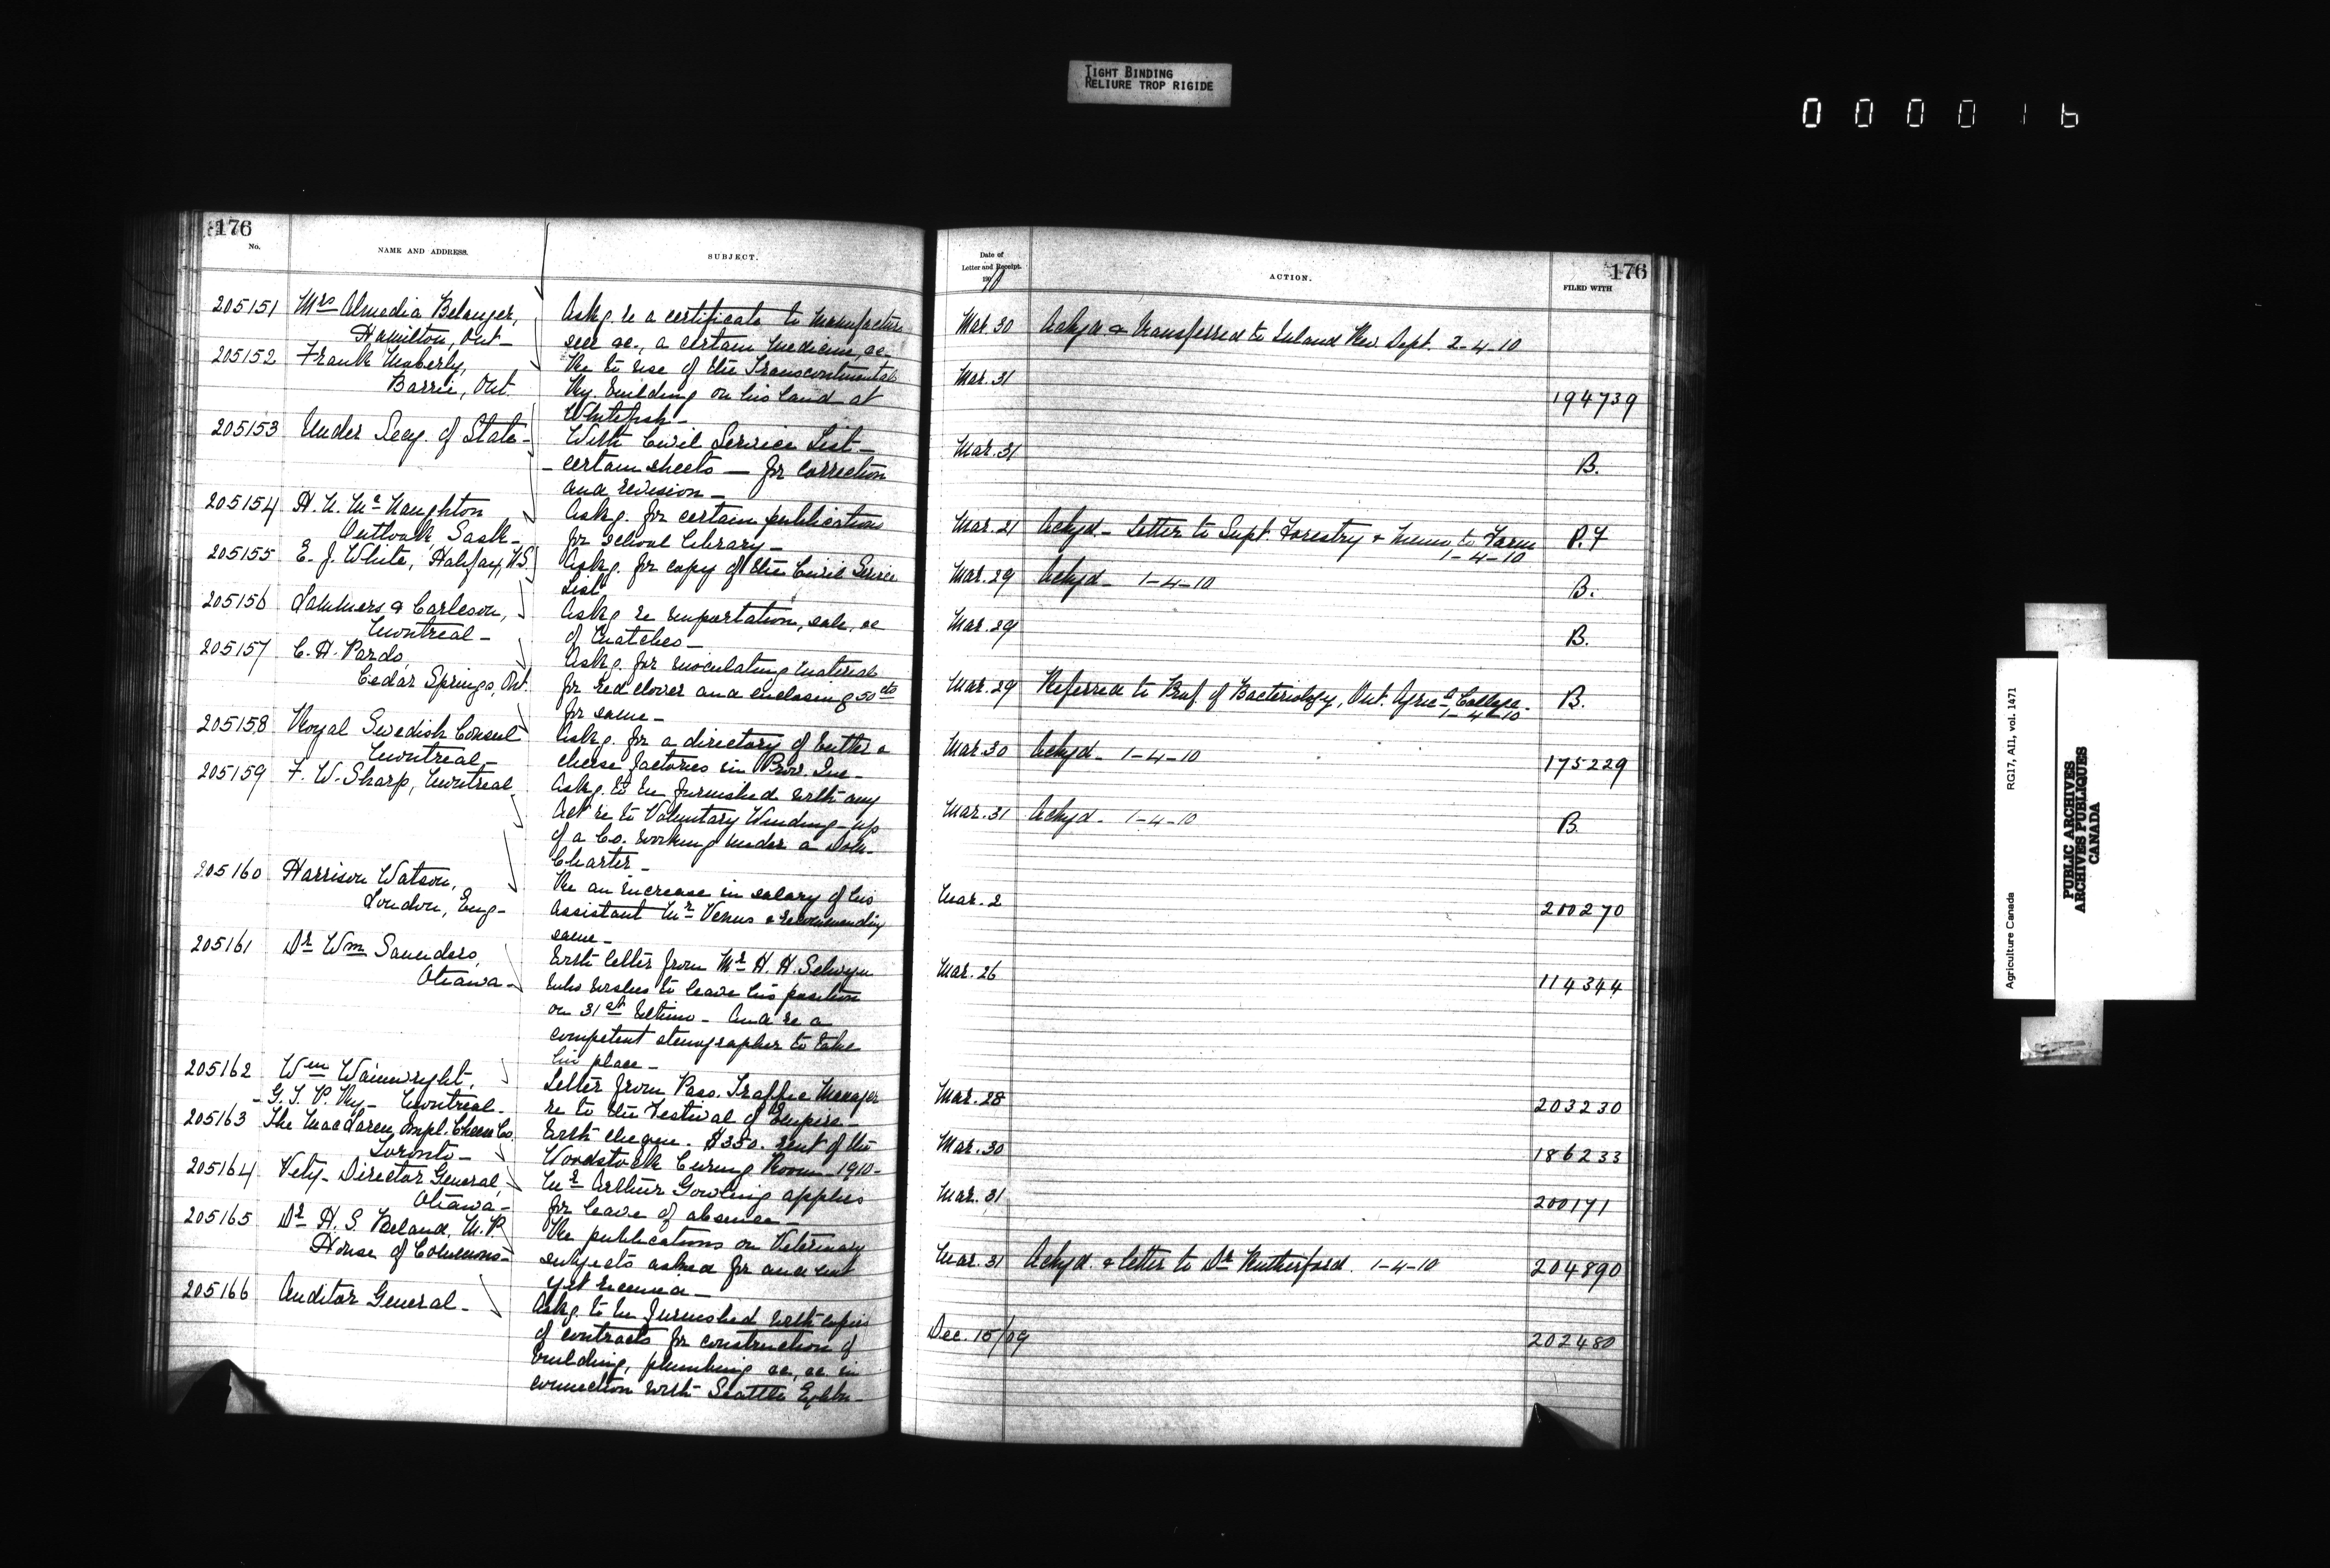 TIGHT BINDING
RELIURE TROP RIGIDE
000016
176
No.
NAME AND ADDRESS.
SUBJECT.
205151 Mrs Almedia Belanger,
Hamilton, Ont-
Askg. re a certificate to manufacture
sell &c., a certain medicine, &c-
205152 Frank Moberly,
Barrie, Ont.
Re to use of the Transcontinental
Ry. building on his land at
Whitefish-
205153 Under Secy. of State-
With Civil Service List-
- certain sheets - for correction
and revision-
205154 H. N. McNaughton
Outlook, Sask-
Askg. for certain publications
for School Library-
205155 E. J. White, Halifax, N.S.
Askg. for copy of the Civil Service
List
205156 Sammers & Carleson,
Montreal-
Askg re importation, sale, &c
of Matches-
205157 C. H. Pardo,
Cedar Springs, Ont.
Askg. for inoculating material
for red clover and enclosing 50 cts
for same-
205158 Royal Swedish Consul
Montreal-
Askg. for a directory of butter &
cheese factories in Prov. Que-
205159 F. W. Sharp, Montreal
Askg. to be furnished with any
Act re to Voluntary Winding-up
of a Co. working under a Dom-
Charter-
205160 Harrison Watson,
London, Eng-
Re an increase in salary of his
Assistant Mr Venus & recommending
same-
205161 Dr Wm Saunders,
Ottawa-
With letter from Mr H. H. Selwyn
who wishes to leave his position
on 31st Ultimo- And re a
competent stenographer to take
his place-
205162 Wm Wainwright,
- G. T. P. Ry- Montreal-
Letter from Pass. Traffic Manager
re to the Festival of Empire-
205163 The MacLaren Impl. Cheese Co.
Toronto-
With cheque. $350. rent of the
Woodstock Curing Room 1910-
205164 Vety- Director General,
Ottawa-
Mr Arthur Gowling applies
for leave of absence-
205165 Dr H. S. Beland, M.P.
House of Commons-
Re publications on Veterinary
subjects asked for and not
yet received-
205166 Auditor General-
Askg. to be furnished with copies
of contracts for construction of
building, plumbing &c, &c in
connection with Seattle Exhbn-
Date of
Letter and Receipt.
190
10
ACTION.
176
FILED WITH
Mar. 30 Ackgd & transferred to Inland Rev. Dept. 2-4-10
Mar. 31 194739
Mar. 31 B.
Mar. 21 Ackgd- Letter to Supt. Forestry & Memo to Farm P.F
1-4-10
Mar. 29 Ackgd- 1-4-10 B.
Mar. 29 B.
Mar. 29 Referred to Prof. of Bacteriology, Ont. Agricl College- B.
1-4-10
Mar. 30 Ackgd- 1-4-10 175229
Mar. 31 Ackgd- 1-4-10 B.
Mar. 2 200270
Mar. 26 114344
Mar. 28 203230
Mar. 30 186233
Mar. 31 200171
Mar. 31 Ackgd. & letter to Dr Rutherford. 1-4-10 204890
Dec. 15/09 202480
Agriculture Canada RG17, AII, vol. 1471
PUBLIC ARCHIVES
ARCHIVES PUBLIQUES
CANADA